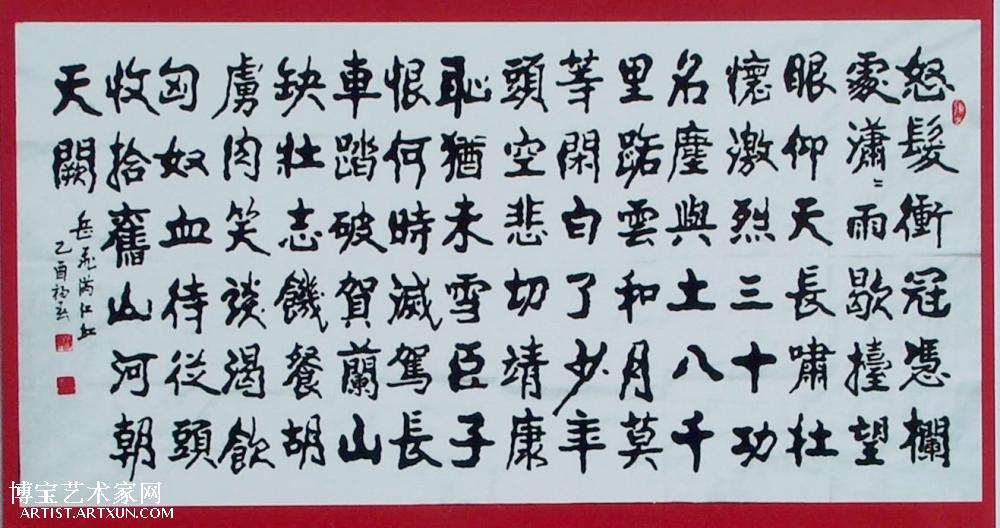 怒髮衝冠憑欄
處瀟〻雨歇擡望
眼仰天長嘯壯
懷激烈三十功
名塵與土八千
里路雲和月莫
等閑白了少年
頭空悲切靖康
恥猶未雪臣子
恨何時滅駕長
車踏破賀蘭山
缺壯志饑餐胡
虜肉笑談渴飲
匈奴血待從頭
收拾舊山河朝
天闕
岳飞满江红
乙酉
博宝艺术家网
ARTIST.ARTXUN.COM